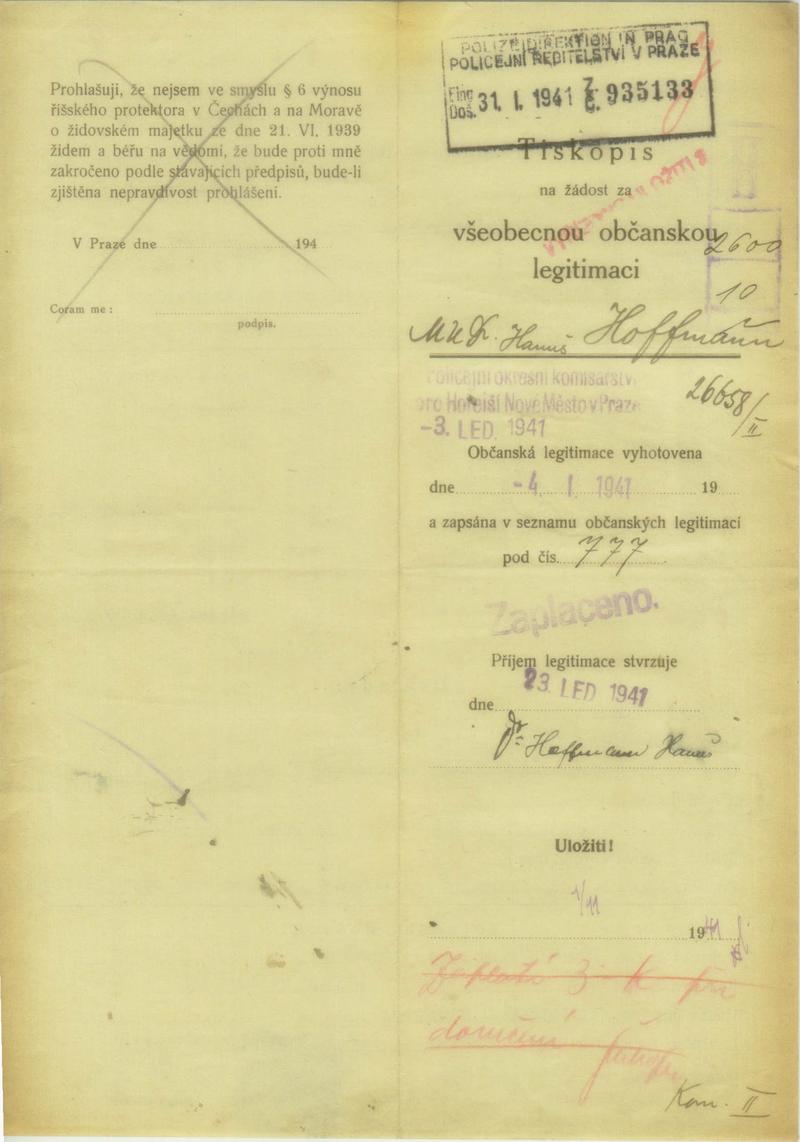 Prohlašuji, že nejsem ve smyslu § 6 výnosu
říšského protektora v Čechách a na Moravě
o židovském majetku ze dne 21. VI. 1939
židem a béřu na vědomí, že bude proti mně
zakročeno podle stávajících předpisů, bude-li
zjištěna nepravdivost prohlášení.
V Praze dne 194
Coram me :
podpis.
POLIZEIDIREKTION IN PRAG
POLICEJNÍ ŘEDITELSTVÍ V PRAZE
Eing.
Doš. 31. I. 1941 Z. Č. 935133
Tiskopis
na žádost za
všeobecnou občanskou
legitimaci
2600
10
MUDr. Hanuš Hoffmann
Policejní okresní komisařství
pro Hořejší Nové Město v Praze
-3. LED. 1941
26658/II
Občanská legitimace vyhotovena
dne -4. I. 1941 19
a zapsána v seznamu občanských legitimací
pod čís. 777
Zaplaceno.
Příjem legitimace stvrzuje
dne 23. LED 1941
Dr. Hoffmann Hanuš
Uložiti!
1/11
1941
Zaplatí 3 K při
doručení
Kom. II